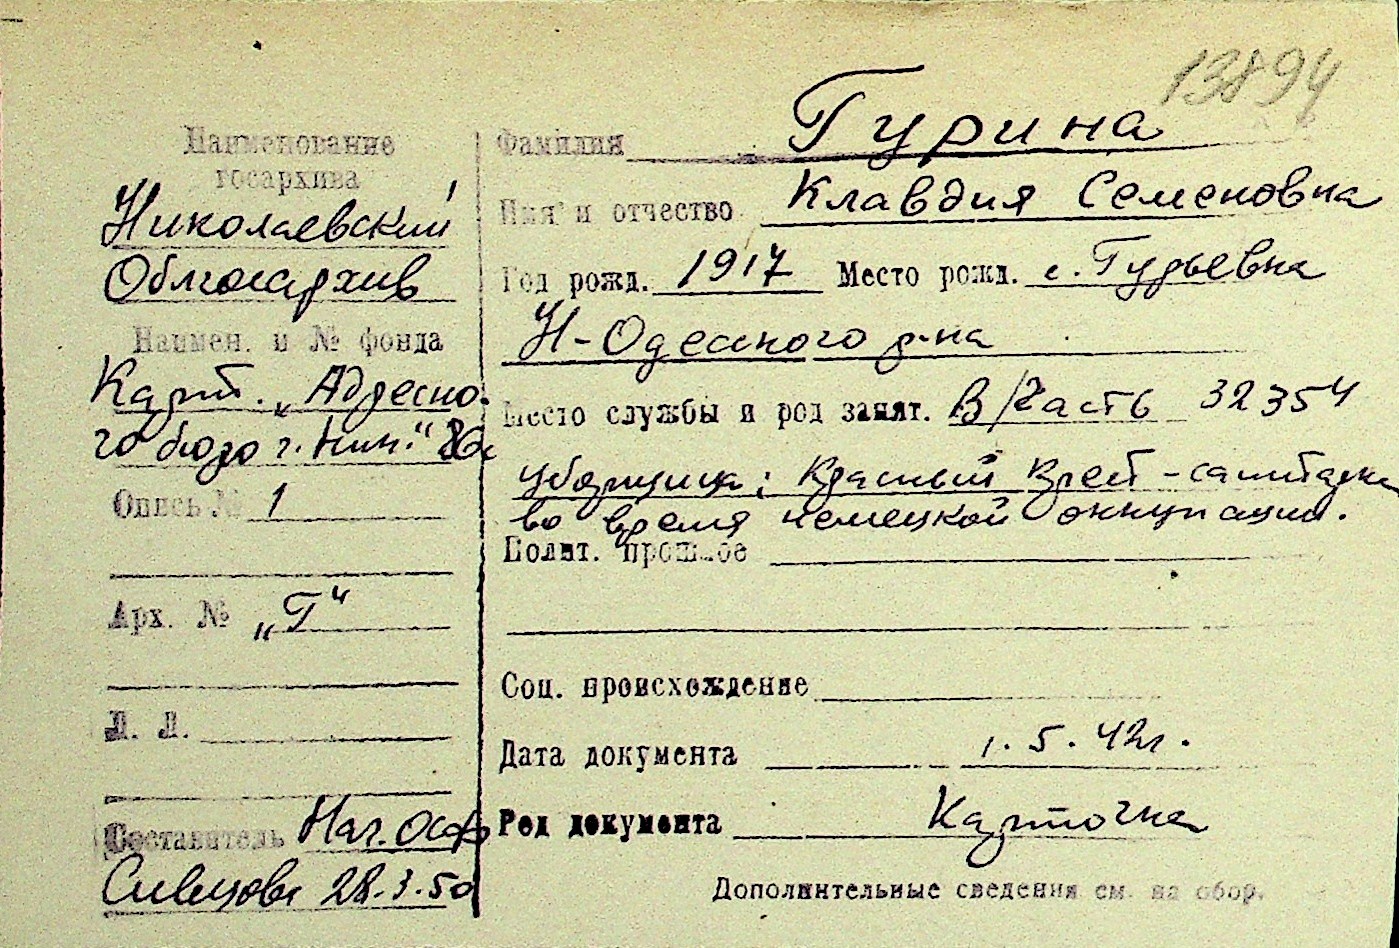 13894
Наименование
госархива
Николаевский
Облгосархив
Наимен. и № фонда
Карт. „Адресно-
го бюро г. Ник."
Опись № 1
Арх. № „Г"
Л. Л.
Составитель Нач. ОСФ
28.3.50
Фамилия Гурина
Имя и отчество Клавдия Семеновна
Год рожд. 1917 Место рожд. с. Гурьевка
Н-Одесского р-на
Место службы и род занят. В/Часть 32354
уборщица; Красный Крест - санитарка
во время немецкой оккупации.
Полит. прошлое
Соц. происхождение
Дата документа 1.5.42г.
Род документа Карточка
Дополнительные сведения см. на обор.